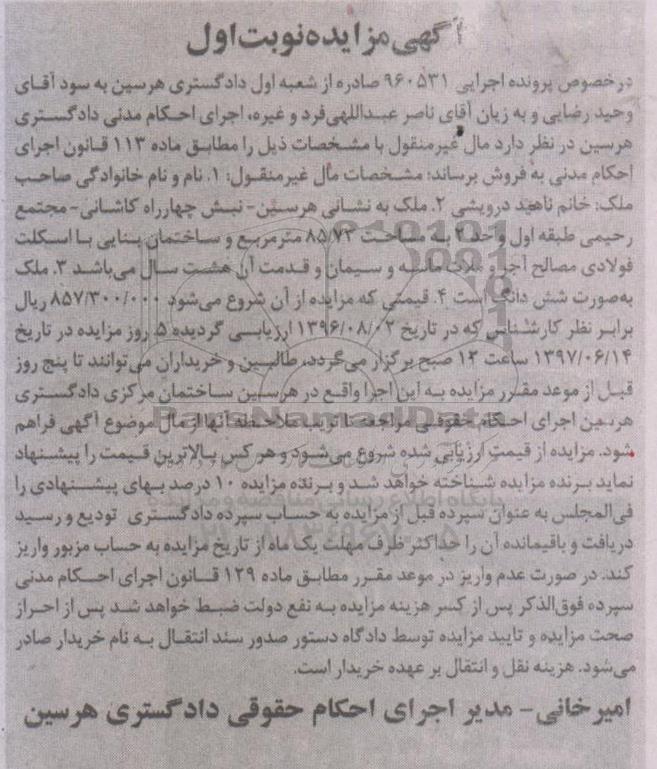 آگهی مزایده نوبت اول
درخصوص پرونده اجرایی ۹۶۰۵۳۱ صادره از شعبه اول دادگستری هرسین به سود آقای
وحید رضایی و به زیان آقای ناصر عبداللهی‌فرد و غیره، اجرای احکام مدنی دادگستری
هرسین در نظر دارد مال غیرمنقول با مشخصات ذیل را مطابق ماده ۱۱۳ قانون اجرای
احکام مدنی به فروش برساند؛ مشخصات مال غیرمنقول: ۱. نام و نام خانوادگی صاحب
ملک: خانم ناهید درویشی ۲. ملک به نشانی هرسین- نبش چهارراه کاشانی- مجتمع
رحیمی طبقه اول واحد ۲ به مساحت ۸۵/۷۳ مترمربع و ساختمان بنایی با اسکلت
فولادی مصالح آجر و ملات ماسه و سیمان و قدمت آن هشت سال می‌باشد ۳. ملک
به‌صورت شش دانگ است ۴. قیمتی که مزایده از آن شروع می‌شود ۸۵۷/۳۰۰/۰۰۰ ریال
برابر نظر کارشناس که در تاریخ ۱۳۹۶/۰۸/۰۲ ارزیابی گردیده ۵. روز مزایده در تاریخ
۱۳۹۷/۰۶/۱۴ ساعت ۱۲ صبح برگزار می‌گردد، طالبین و خریداران می‌توانند تا پنج روز
قبل از موعد مقرر مزایده به این اجرا واقع در هرسین ساختمان مرکزی دادگستری
هرسین اجرای احکام حقوقی مراجعه تا ترتیب ملاحظه آنها از مال موضوع آگهی فراهم
شود. مزایده از قیمت ارزیابی شده شروع می‌شود و هر کس بالاترین قیمت را پیشنهاد
نماید برنده مزایده شناخته خواهد شد و برنده مزایده ۱۰ درصد بهای پیشنهادی را
فی‌المجلس به عنوان سپرده قبل از مزایده به حساب سپرده دادگستری تودیع و رسید
دریافت و باقیمانده آن را حداکثر ظرف مهلت یک ماه از تاریخ مزایده به حساب مزبور واریز
کند. در صورت عدم واریز در موعد مقرر مطابق ماده ۱۲۹ قانون اجرای احکام مدنی
سپرده فوق‌الذکر پس از کسر هزینه مزایده به نفع دولت ضبط خواهد شد پس از احراز
صحت مزایده و تایید مزایده توسط دادگاه دستور صدور سند انتقال به نام خریدار صادر
می‌شود. هزینه نقل و انتقال بر عهده خریدار است.
امیرخانی- مدیر اجرای احکام حقوقی دادگستری هرسین
ParsNamadData